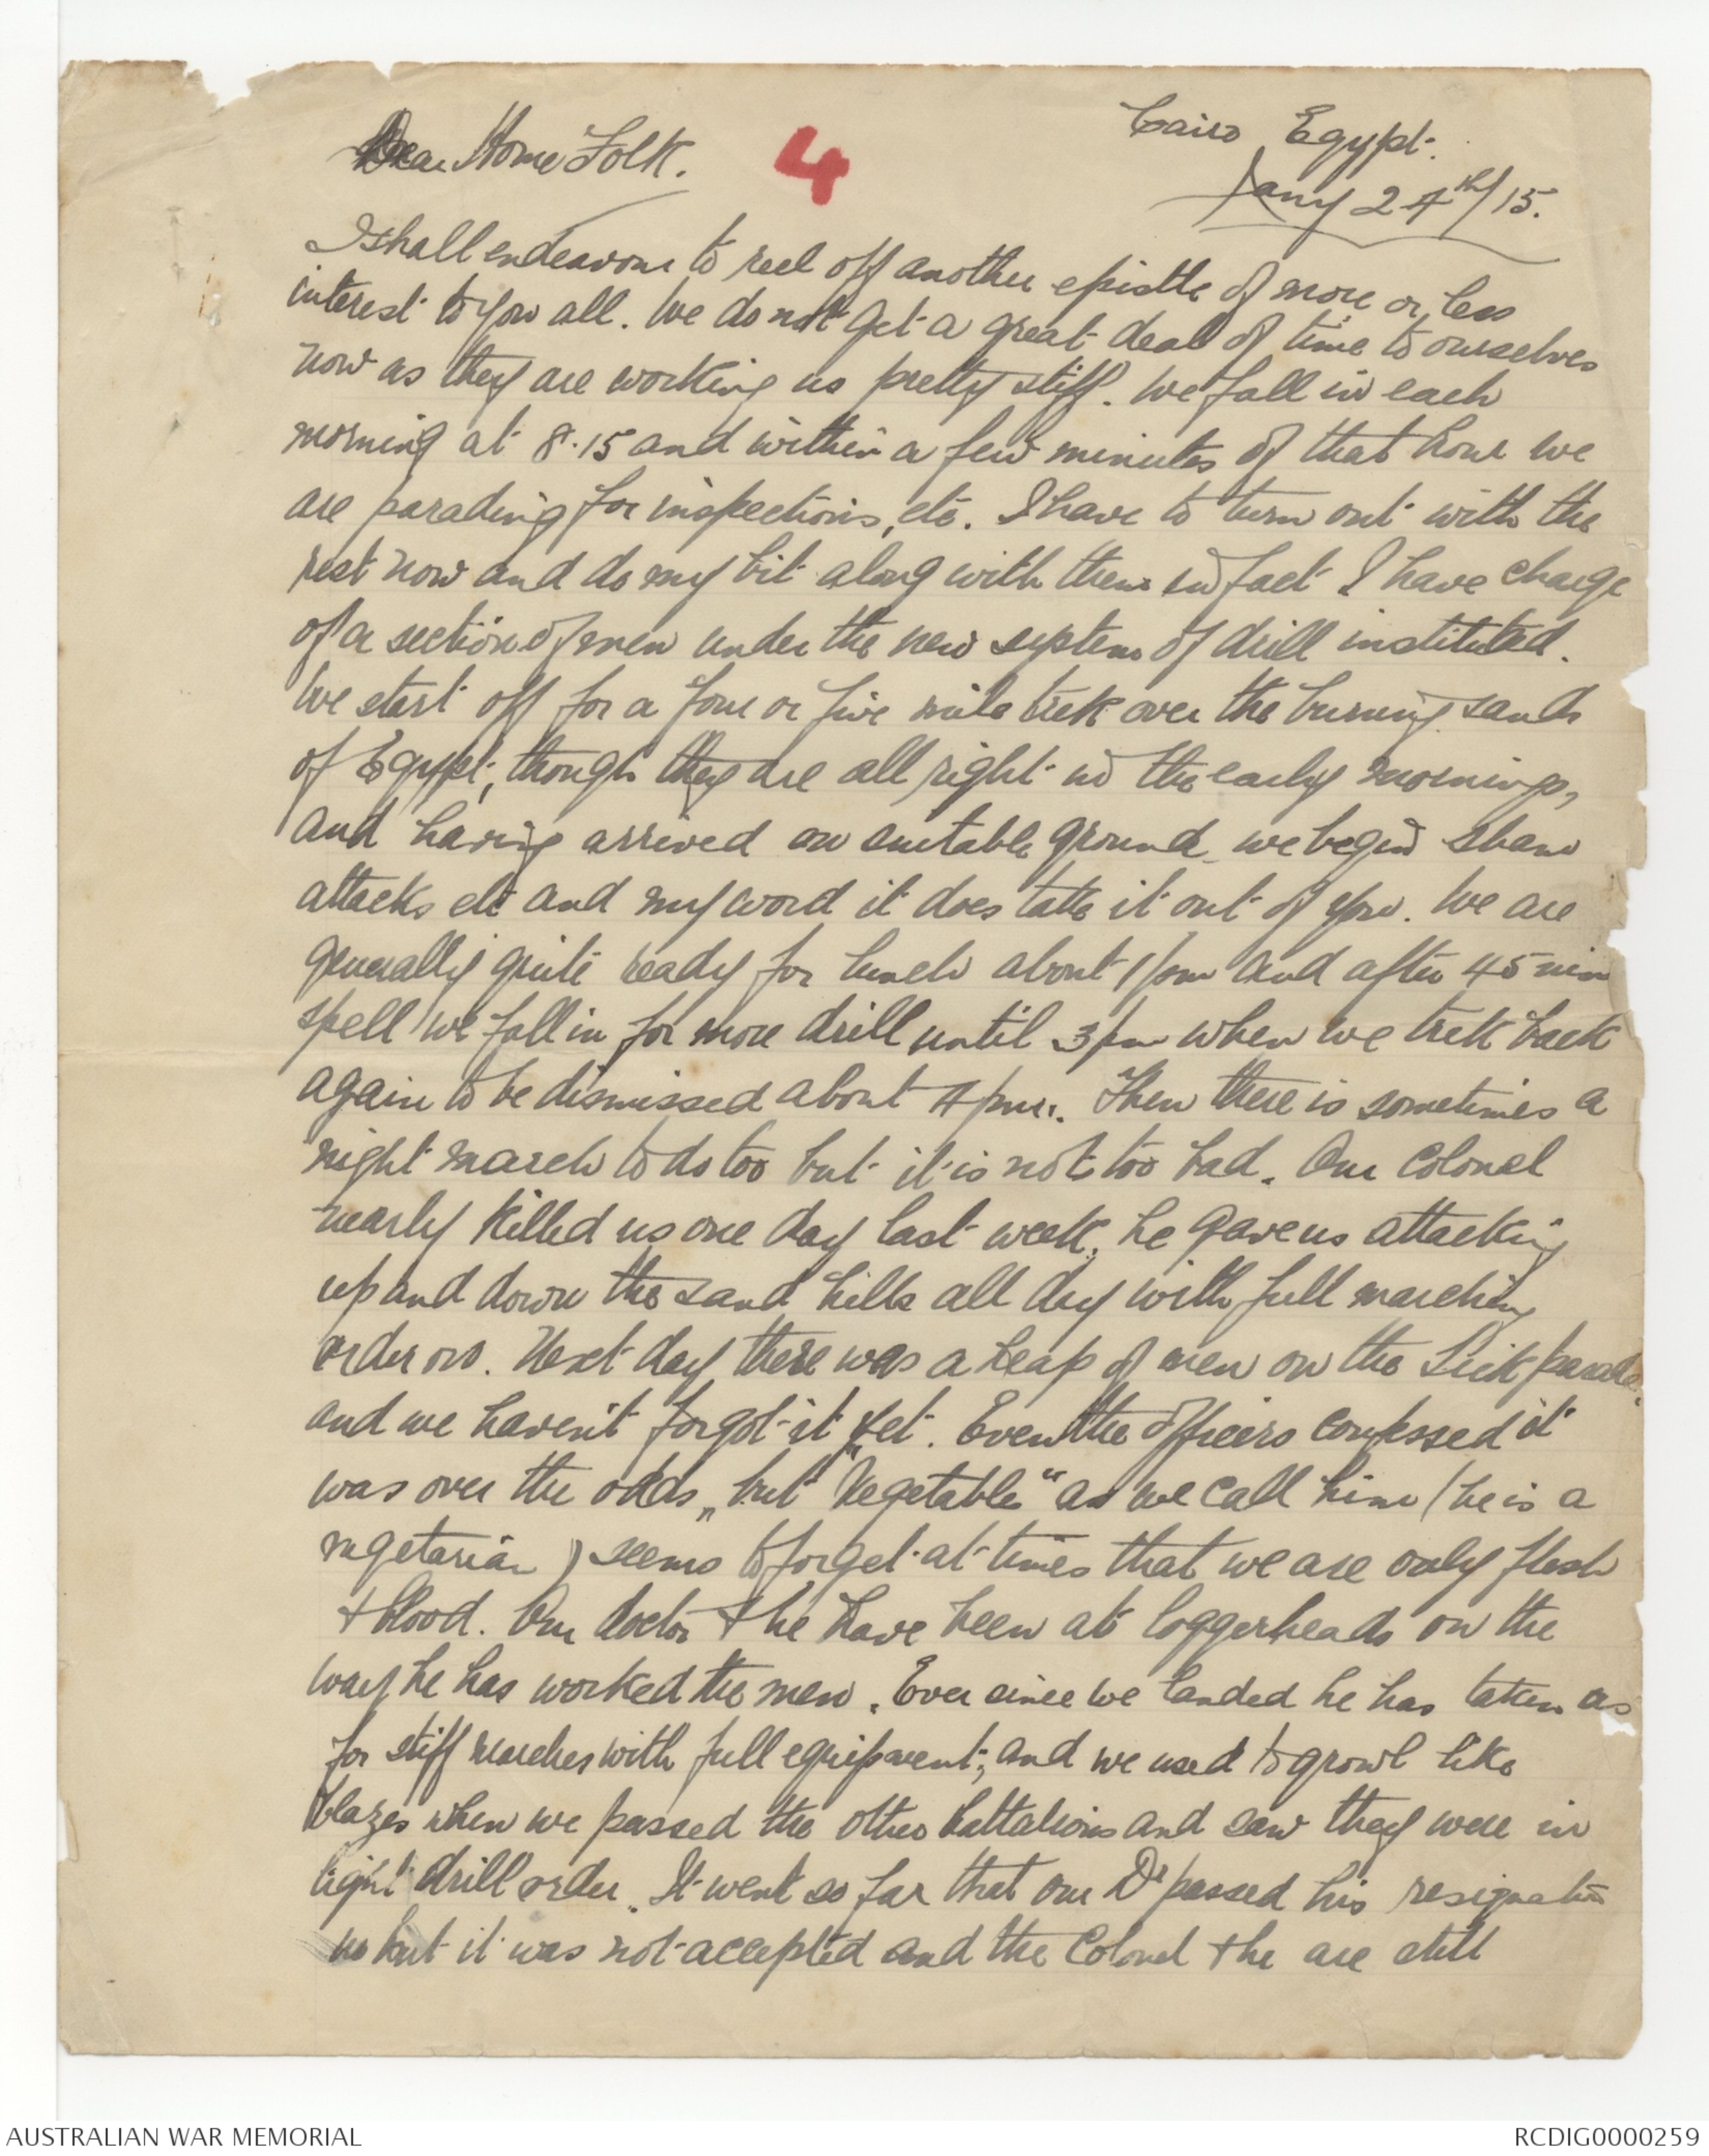 Cairo, Egypt.
Dear Home Folk. 4
Jany 24th/15.
I shall endeavour to reel off another epistle of more or less
interest to you all. We do not get a great deal of time to ourselves
now as they are working us pretty stiff. We fall in each
morning at 8.15 and within a few minutes of that hour we
are parading for inspections, etc. I have to turn out with the
rest now and do my bit along with them in fact I have charge
of a section of men under the new system of drill instituted.
We start off for a four or five mile trek over the burning sands
of Egypt, though they are all right in the early mornings,
and having arrived on suitable ground we begin sham
attacks etc and my word it does take it out of you. We are
generally quite ready for lunch about 1 pm and after 45 min
spell we fall in for more drill until 3 pm when we trek back
again to be dismissed about 4 pm. Then there is sometimes a
night march to do too but it is not too bad. Our Colonel
nearly killed us one day last week, he gave us attacking
up and down the sand hills all day with full marching
order on. Next day there was a heap of men on the Sick parade
and we haven't forgot it yet. Even the officers confessed it
was over the odds, but "Vegetable" as we call him (he is a
vegetarian) seems to forget at times that we are only flesh
+ blood. Our doctor + he have been at loggerheads on the
way he has worked the men. Ever since we landed he has taken us
for stiff marches with full equipment, and we used to growl like
blazes when we passed the other battalions and saw they were in
light drill order. It went so far that our Dr passed his resignation
in but it was not accepted and the Colonel + he are still
AUSTRALIAN WAR MEMORIAL
RCDIG0000259